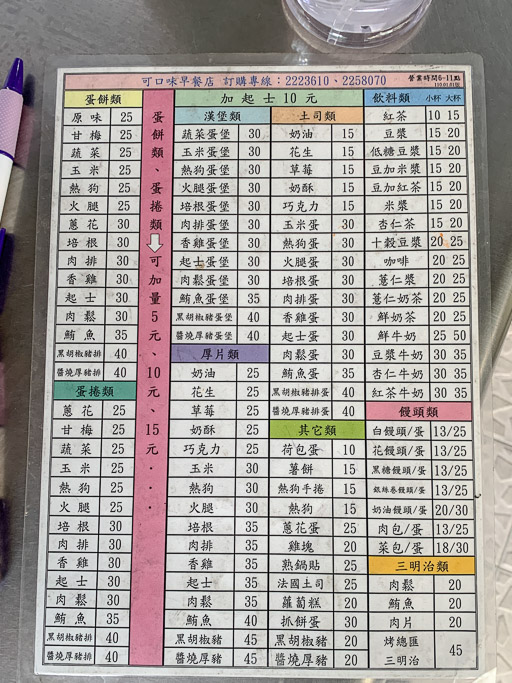 可口味早餐店 訂購專線：2223610、2258070
營業時間6-11點
蛋餅類
原味 25
甘梅 25
蔬菜 25
玉米 25
熱狗 25
火腿 25
蔥花 30
培根 30
肉排 30
香雞 30
起士 30
肉鬆 30
鮪魚 35
黑胡椒豬排 40
醬燒厚豬排 40
蛋捲類
蔥花 25
甘梅 25
蔬菜 25
玉米 25
熱狗 25
火腿 25
培根 30
肉排 30
香雞 30
起士 30
肉鬆 30
鮪魚 35
黑胡椒豬排 40
醬燒厚豬排 40
蛋餅類、蛋捲類⇩可加量5元、10元、15元...
加起士10元
漢堡類
蔬菜蛋堡 30
玉米蛋堡 30
熱狗蛋堡 30
火腿蛋堡 30
培根蛋堡 30
肉排蛋堡 30
香雞蛋堡 30
起士蛋堡 30
肉鬆蛋堡 30
鮪魚蛋堡 35
黑胡椒豬蛋堡 40
醬燒厚豬蛋堡 40
厚片類
奶油 25
花生 25
草莓 25
奶酥 25
巧克力 25
玉米 30
熱狗 30
火腿 30
培根 35
肉排 35
香雞 35
起士 35
肉鬆 35
鮪魚 40
黑胡椒豬 45
醬燒厚豬 45
土司類
奶油 15
花生 15
草莓 15
奶酥 15
巧克力 15
玉米蛋 30
熱狗蛋 30
火腿蛋 30
培根蛋 30
肉排蛋 30
香雞蛋 30
起士蛋 30
肉鬆蛋 30
鮪魚蛋 35
黑胡椒豬排蛋 40
醬燒厚豬排蛋 40
其它類
荷包蛋 10
薯餅 15
熱狗手捲 15
熱狗 15
蔥花蛋 25
雞塊 20
熟鍋貼 25
法國土司 25
蘿蔔糕 20
抓餅蛋 30
黑胡椒豬 20
醬燒厚豬 20
飲料類 小杯 大杯
紅茶 10 15
豆漿 15 20
低糖豆漿 15 20
豆加米漿 15 20
豆加紅茶 15 20
米漿 15 20
杏仁茶 15 20
十穀豆漿 20 25
咖啡 20 25
薏仁漿 20 25
薏仁奶茶 20 25
鮮奶茶 20 25
鮮牛奶 25 50
豆漿牛奶 30 35
杏仁牛奶 30 35
紅茶牛奶 30 35
饅頭類
白饅頭/蛋 13/25
花饅頭/蛋 13/25
黑糖饅頭/蛋 13/25
銀絲卷饅頭/蛋 13/25
奶油饅頭/蛋 20/30
肉包/蛋 13/25
菜包/蛋 18/30
三明治類
肉鬆 20
鮪魚 20
肉片 20
烤總匯三明治 45